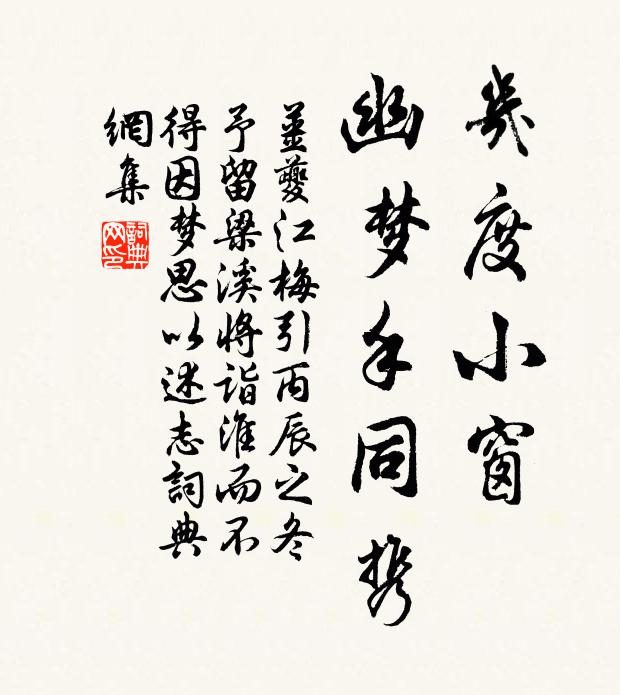 幾度小窗
幽梦手同携
姜夔江梅引丙辰之冬
予留梁溪将诣淮而不
得因梦思以述志詞典
網集
詞典网印